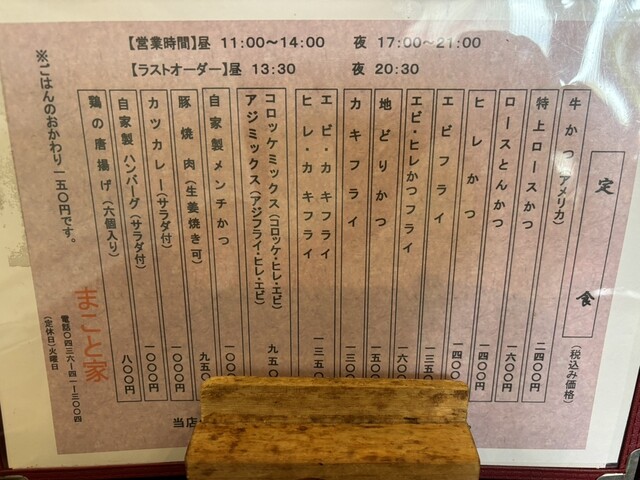 【営業時間】昼 11:00～14:00 夜 17:00～21:00
【ラストオーダー】昼 13:30 夜 20:30
定食 (税込み価格)
牛かつ(アメリカ) 二四〇〇円
特上ロースかつ 一六〇〇円
ロースとんかつ 一四〇〇円
ヒレかつ 一四〇〇
エビフライ 一三五〇
エビ・ヒレかつフライ 一六〇
地どりかつ 五〇
カキフライ 一三〇
エビ・カキフライ
ヒレ・カキフライ 一三五
コロッケミックス(コロッケ・ヒレ・エビ)
アジミックス(アジフライ・ヒレ・エビ) 九五
自家製メンチかつ 一〇〇
豚焼肉(生姜焼き可) 九五
カツカレー(サラダ付) 一〇〇〇円
自家製ハンバーグ(サラダ付) 一〇〇〇円
鶏の唐揚げ(六個入り) 八〇〇円
※ごはんのおかわり一五〇円です。
まこと家
電話〇四三六-四一-三〇〇四
(定休日)火曜日
当店